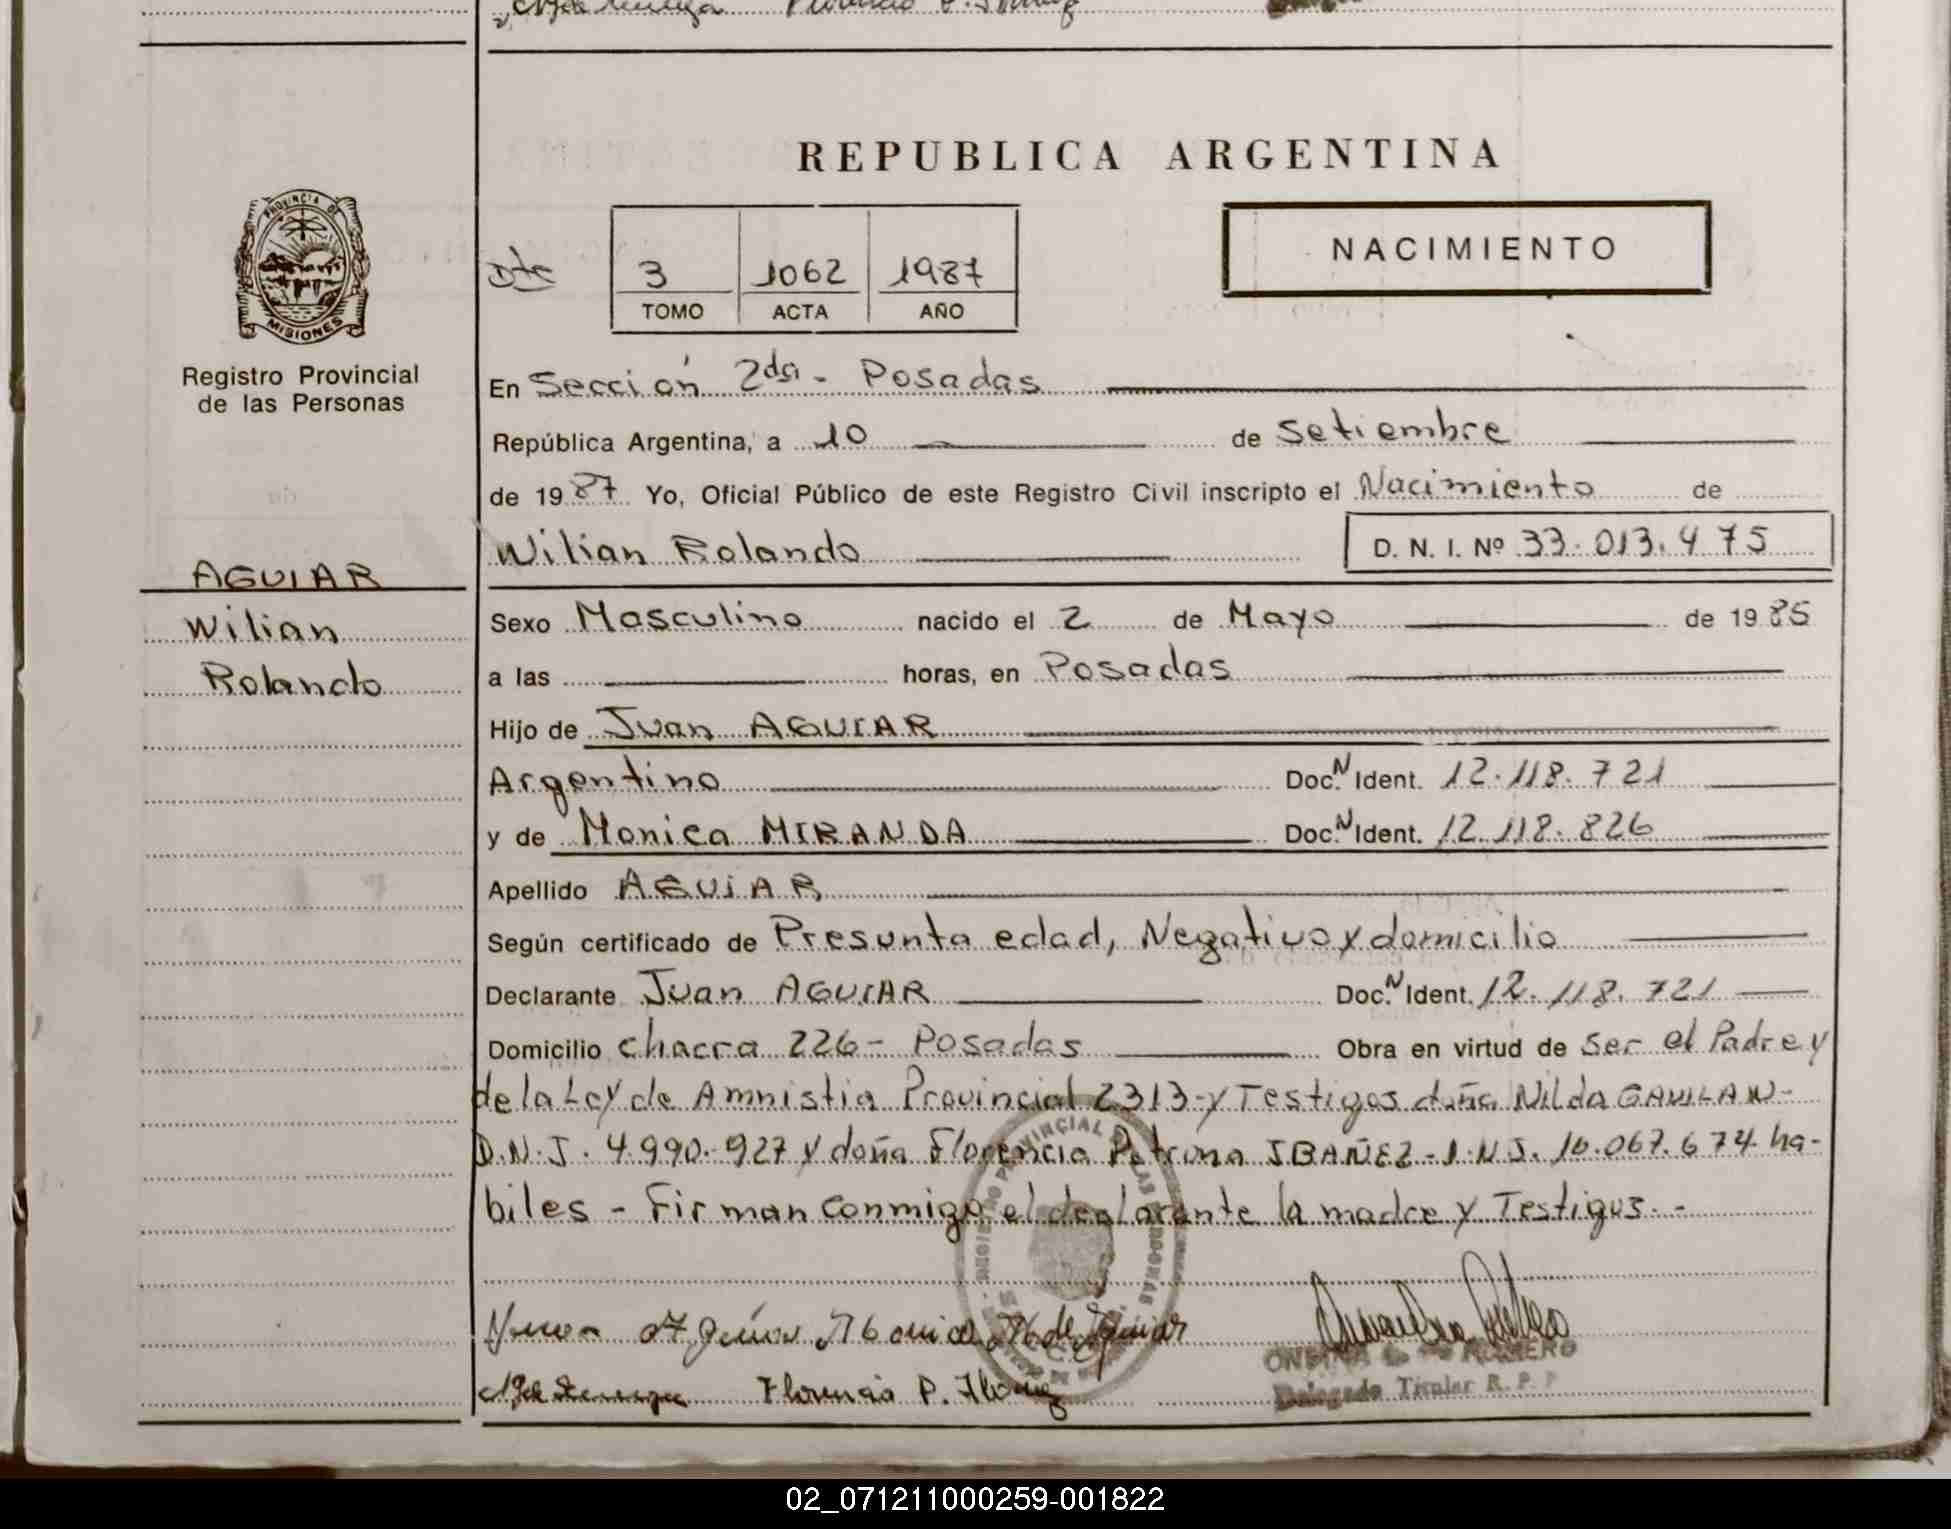 REPUBLICA ARGENTINA
PROVINCIA DE
MISIONES
Registro Provincial
de las Personas
NACIMIENTO
Dto 3 1062 1987
TOMO ACTA AÑO
En Sección 2da - Posadas
República Argentina, a 10 de Setiembre
de 1987 Yo, Oficial Público de este Registro Civil inscripto el Nacimiento de
Wilian Rolando D. N. I. Nº 33.013.475
AGUIAR
Wilian
Rolando
Sexo Masculino nacido el 2 de Mayo de 1985
a las horas, en Posadas
Hijo de Juan AGUIAR
Argentino Doc. N Ident. 12.118.721
y de Monica MIRANDA Doc. N Ident. 12.118.826
Apellido AGUIAR
Según certificado de Presunta edad, Negativo y domicilio
Declarante Juan AGUIAR Doc. N Ident. 12.118.721
Domicilio chacra 226 - Posadas Obra en virtud de Ser el Padre y
de la Ley de Amnistia Provincial 2313 - y Testigos doña Nilda GAVILAN -
D.N.I. 4.990.927 y doña Florencia Petrona IBAÑEZ - D.N.I. 10.067.674 ha-
biles - Firman conmigo el declarante la madre y Testigos. -
Monica M de Aguiar
Florencia P.
ROMERO
Delegada Titular R. P. P
02_071211000259-001822